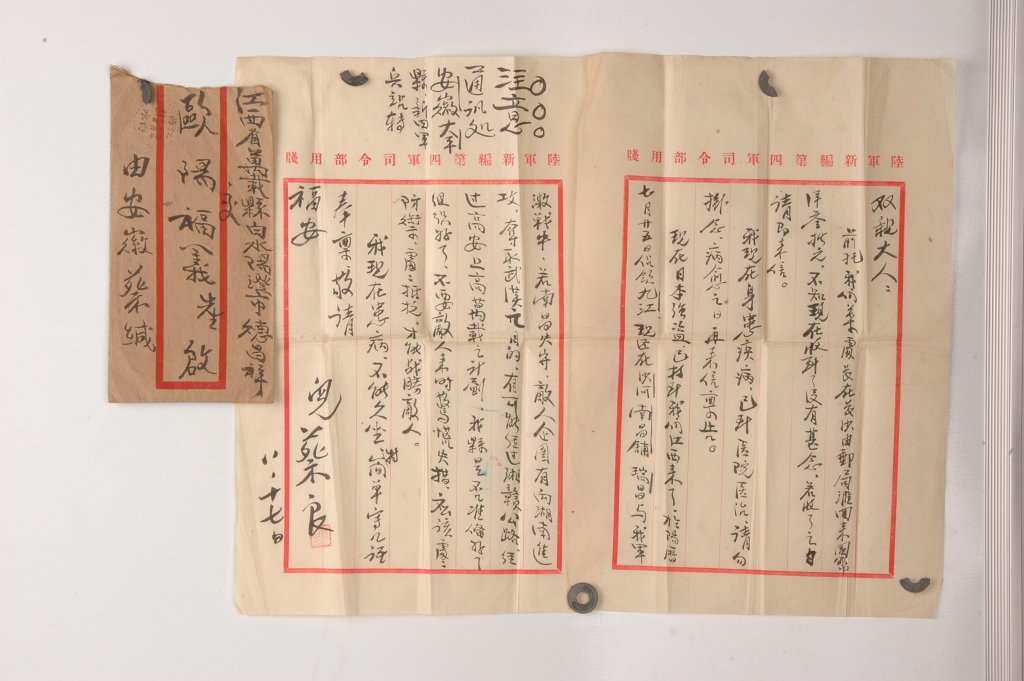 陸軍新編第四軍司令部用牋
双親大人：
前托我们慶长在长沙由郵局滙囬来国幣
洋叁拾元，不知現在收到了没有甚念。若收了之日
請即来信。
我現在身患疾病，已到医院医治，請勿
掛念，病愈之日再来信
現在日本強盗已打到我们江西来了，於陽历
七月廿五日侵領九江 現还在沙河 南昌鋪 瑞昌与我軍
陸軍新編第四軍司令部用牋
激戰中，若南昌失守，敵人企圖有向湖南進
攻，夺取武漢之目的，有可能经过湘贛公路，经
过高安上高萬載之計劃 我縣是否准備好了
组织好了 不要敵人来時驚慌失措，应该處々
防禦，處々抵抗 才能战勝敵人。
我現在患病，不能久坐簡单寫几语
奉稟敬請
福安
兒 蔡良
八、十七日
〇〇〇
注意
通訊处
安徽太平
縣新四軍
兵站轉
江西省萬載縣白水陽澄市德昌祥
交
歐陽福義先生 啟
由安徽蔡缄